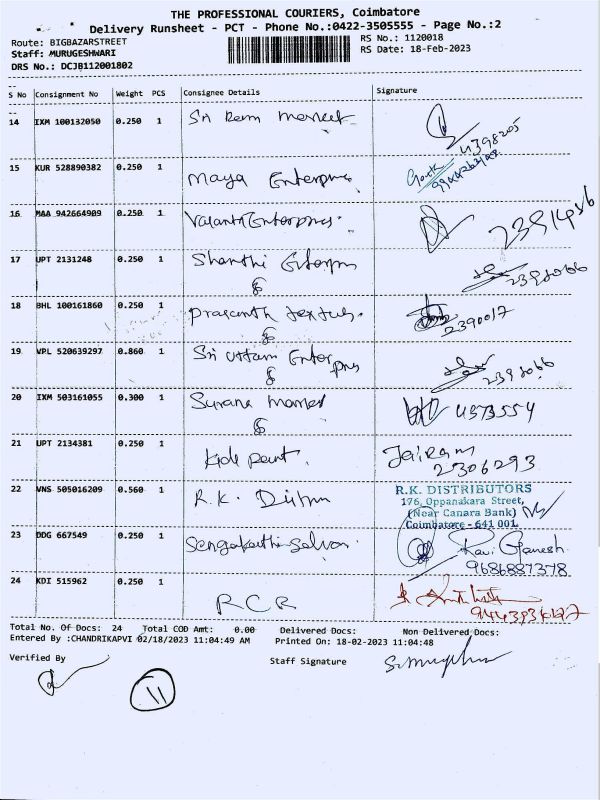 THE PROFESSIONAL COURIERS, Coimbatore
Delivery Runsheet - PCT - Phone No.:0422-3505555 - Page No.:2
Route: BIGBAZARSTREET
Staff: MURUGESHWARI
DRS No.: DCJB112001802
RS No.: 1120018
RS Date: 18-Feb-2023
S No Consignment No Weight PCS Consignee Details Signature
14 IXM 100132050 0.250 1 Sri Ram market 4398205
15 KUR 528890382 0.250 1 Maya Enterprises
16 MAA 942664909 0.250 1 Vasanth Enterprises. 2391456
17 UPT 2131248 0.250 1 Shanthi Enterprises 2398066
18 BHL 100161860 0.250 1 Prasanth textus. 2390017
19 VPL 520639297 0.860 1 Sri Uttam Enterprises 2398066
20 IXM 503161055 0.300 1 Surana Market 4373554
21 UPT 2134381 0.250 1 Kids paint. Jairam
2306293
22 VNS 505016209 0.560 1 R.K. R.K. DISTRIBUTORS
176, Oppanakara Street,
(Near Canara Bank)
Coimbatore - 641 001.
23 DDG 667549 0.250 1 Ravi Ganesh
9686887378
24 KDI 515962 0.250 1 RCR
Total No. Of Docs: 24 Total COD Amt: 0.00 Delivered Docs: Non Delivered Docs:
Entered By :CHANDRIKAPVI 02/18/2023 11:04:49 AM Printed On: 18-02-2023 11:04:48
Verified By Staff Signature
11